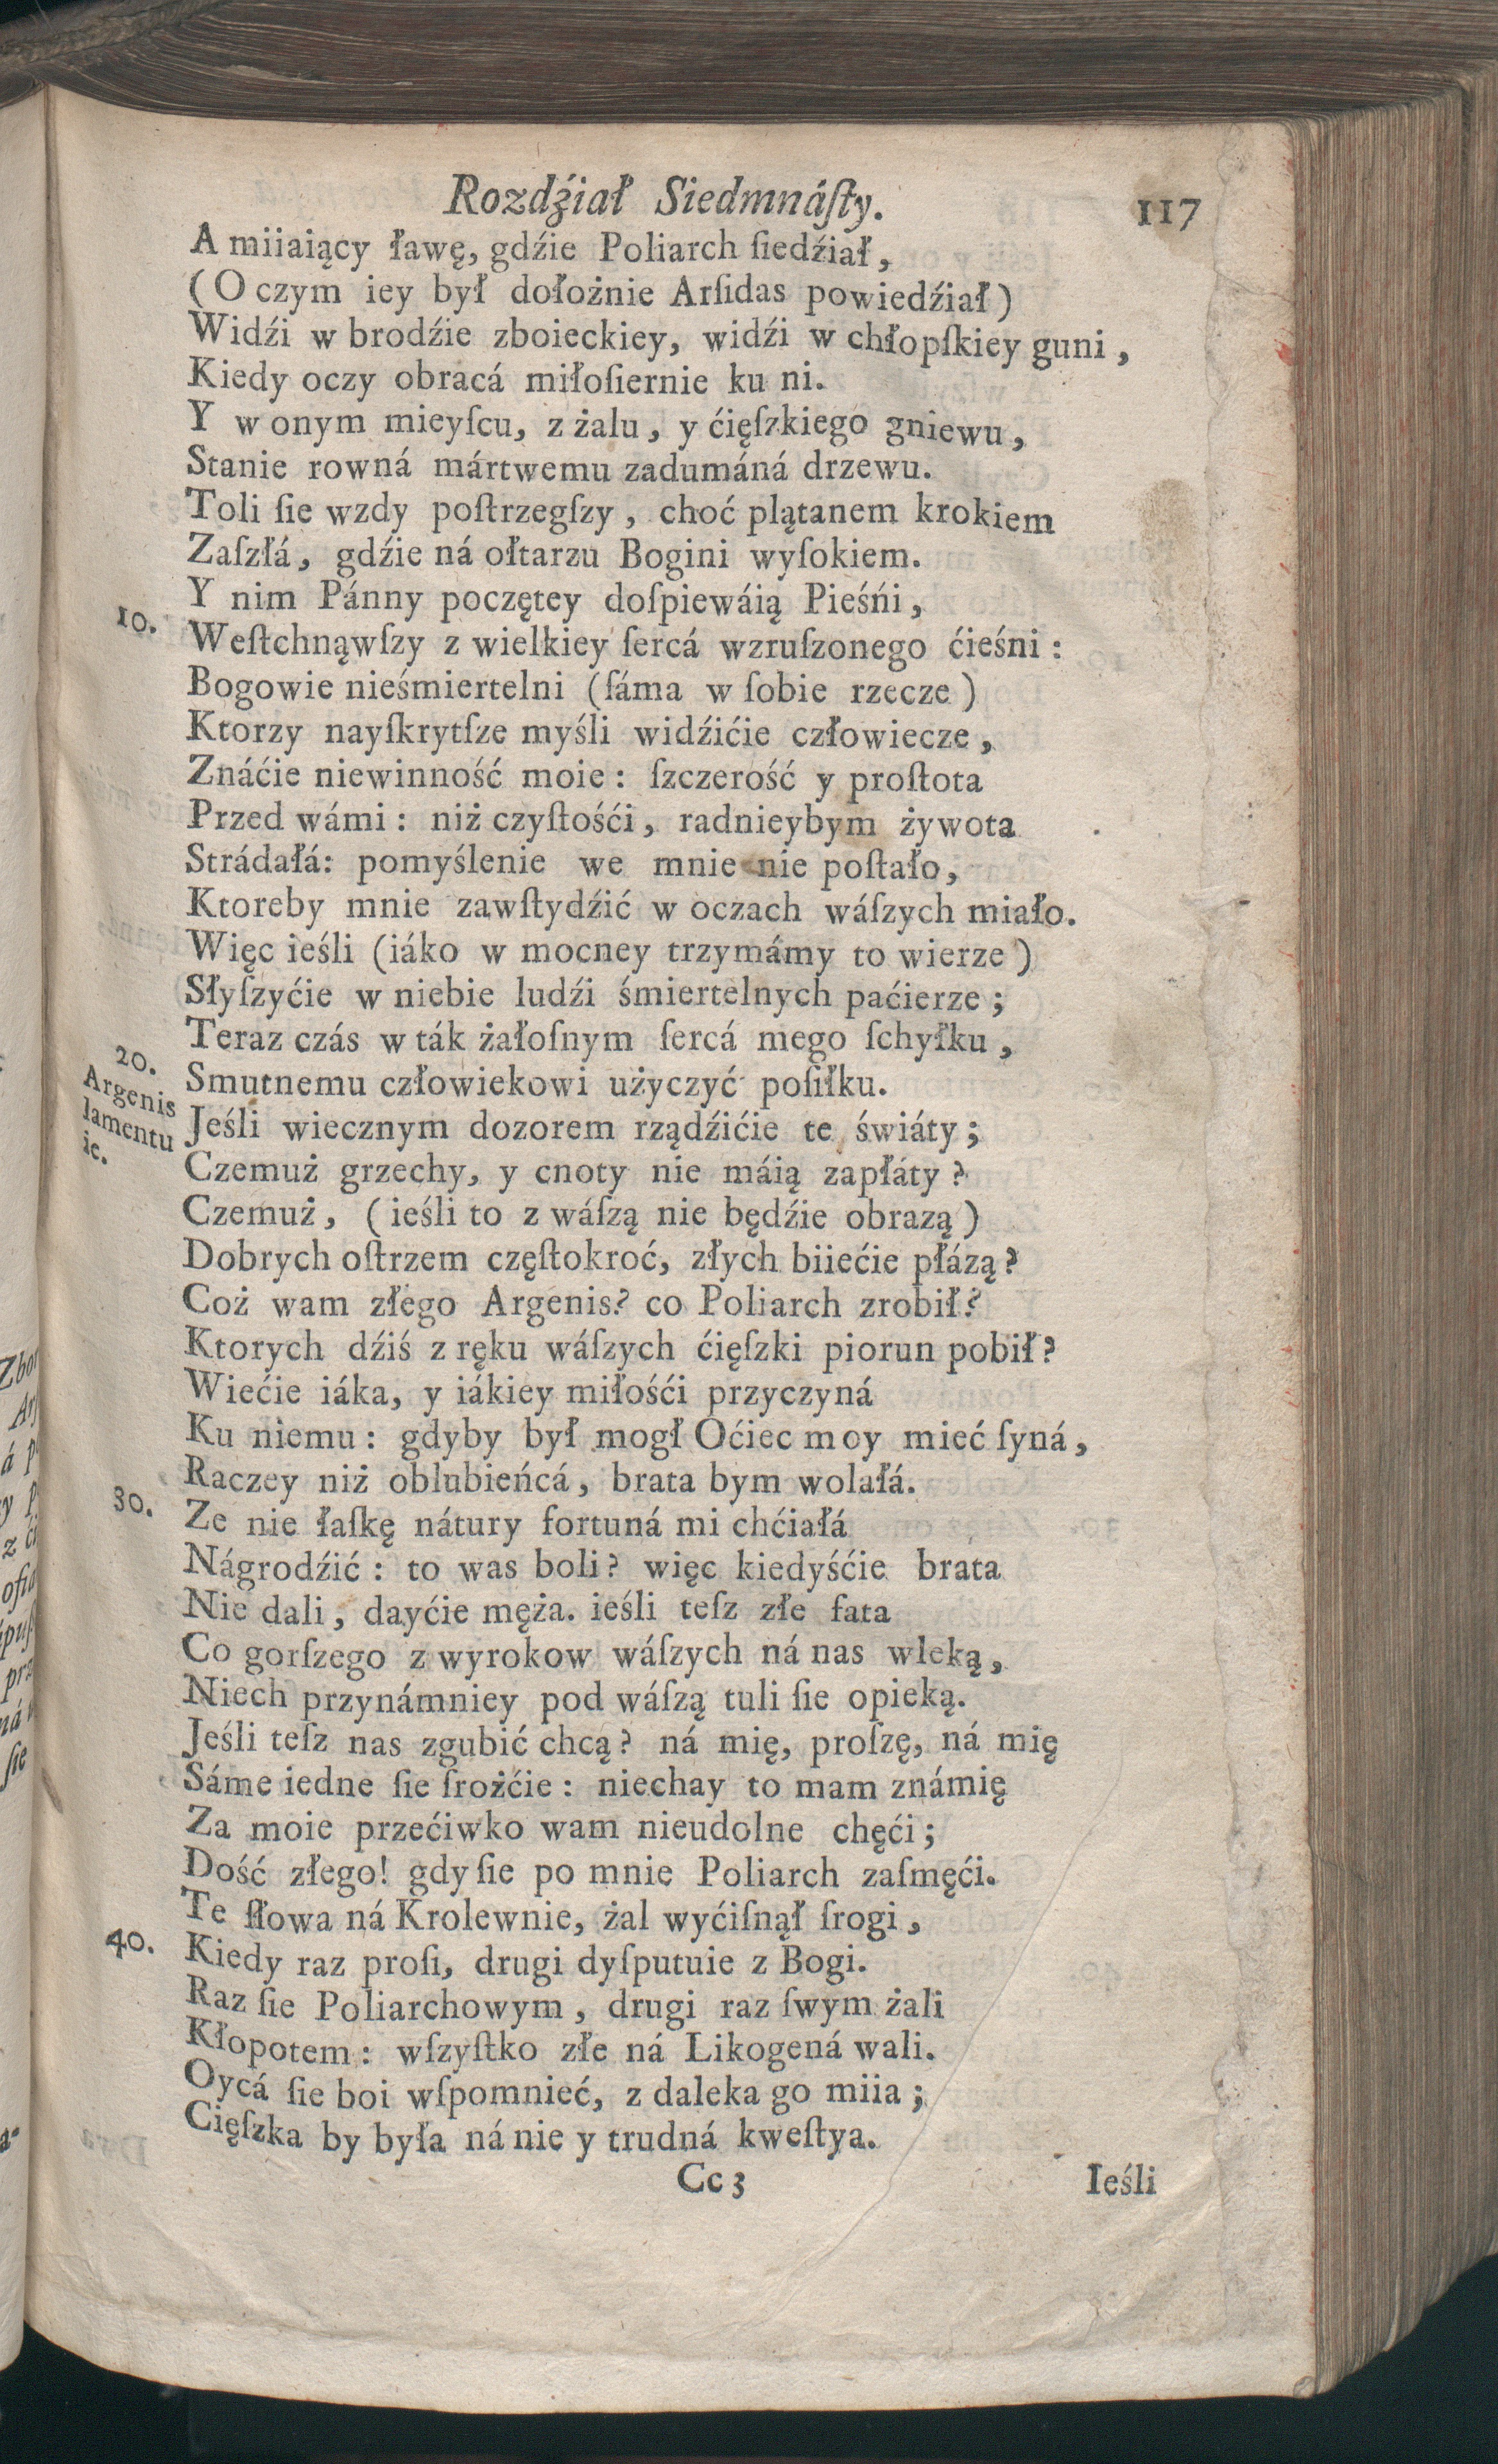 Rozdźiał Siedmnáſty. 117
A miiaiący ławę, gdźie Poliarch ſiedźiał,
(O czym iey był dołożnie Arſidas powiedźiał)
Widźi w brodźie zboieckiey, widźi w chłopſkiey guni,
Kiedy oczy obracá miłoſiernie ku ni.
Y w onym mieyſcu, z żalu, y ćięſzkiego gniewu,
Stanie rowná mártwemu zadumáná drzewu.
Toli ſie wzdy poſtrzegſzy, choć plątanem krokiem
Zaſzłá, gdźie ná ołtarzu Bogini wyſokiem.
Y nim Pánny poczętey doſpiewáią Pieśńi,
10. Weſtchnąwſzy z wielkiey ſercá wzruſzonego ćieśni:
Bogowie nieśmiertelni (ſáma w ſobie rzecze)
Ktorzy nayſkrytſze myśli widźićie człowiecze,
Znáćie niewinność moie: ſzczerość y proſtota
Przed wámi: niż czyſtośći, radnieybym żywota
Strádałá: pomyślenie we mnie nie poſtało,
Ktoreby mnie zawſtydźić w oczach wáſzych miało.
Więc ieśli (iáko w mocney trzymámy to wierze)
Słyſzyćie w niebie ludźi śmiertelnych paćierze;
Teraz czás w ták żałoſnym ſercá mego ſchyłku,
20. Smutnemu człowiekowi użyczyć poſiłku.
Argenis
lamentu
ie.
Jeśli wiecznym dozorem rządźićie te świáty;
Czemuż grzechy, y cnoty nie máią zapłáty?
Czemuż, (ieśli to z wáſzą nie będźie obrazą)
Dobrych oſtrzem częſtokroć, złych biiećie płázą?
Coż wam złego Argenis? co Poliarch zrobił?
Ktorych dźiś z ręku wáſzych ćięſzki piorun pobił?
Wiećie iáka, y iákiey miłośći przyczyná
Ku niemu: gdyby był mogł Oćiec moy mieć ſyná,
Raczey niż oblubieńcá, brata bym wolałá.
30. Ze nie łaſkę nátury fortuná mi chćiałá
Nágrodźić: to was boli? więc kiedyśćie brata
Nie dali, dayćie męża. ieśli teſz złe fata
Co gorſzego z wyrokow wáſzych ná nas wleką,
Niech przynámniey pod wáſzą tuli ſie opieką.
Jeśli teſz nas zgubić chcą? ná mię, proſzę, ná mię
Sáme iedne ſie ſrożćie: niechay to mam známię
Za moie przećiwko wam nieudolne chęći;
Dość złego! gdy ſie po mnie Poliarch zaſmęći.
Te ſłowa ná Krolewnie, żal wyćiſnął ſrogi,
40. Kiedy raz proſi, drugi dyſputuie z Bogi.
Raz ſie Poliarchowym, drugi raz ſwym żali
Kłopotem: wſzyſtko złe ná Likogená wali.
Oycá ſie boi wſpomnieć, z daleka go miia;
Cięſzka by była ná nie y trudná kweſtya.
Cc 3 Ieśli